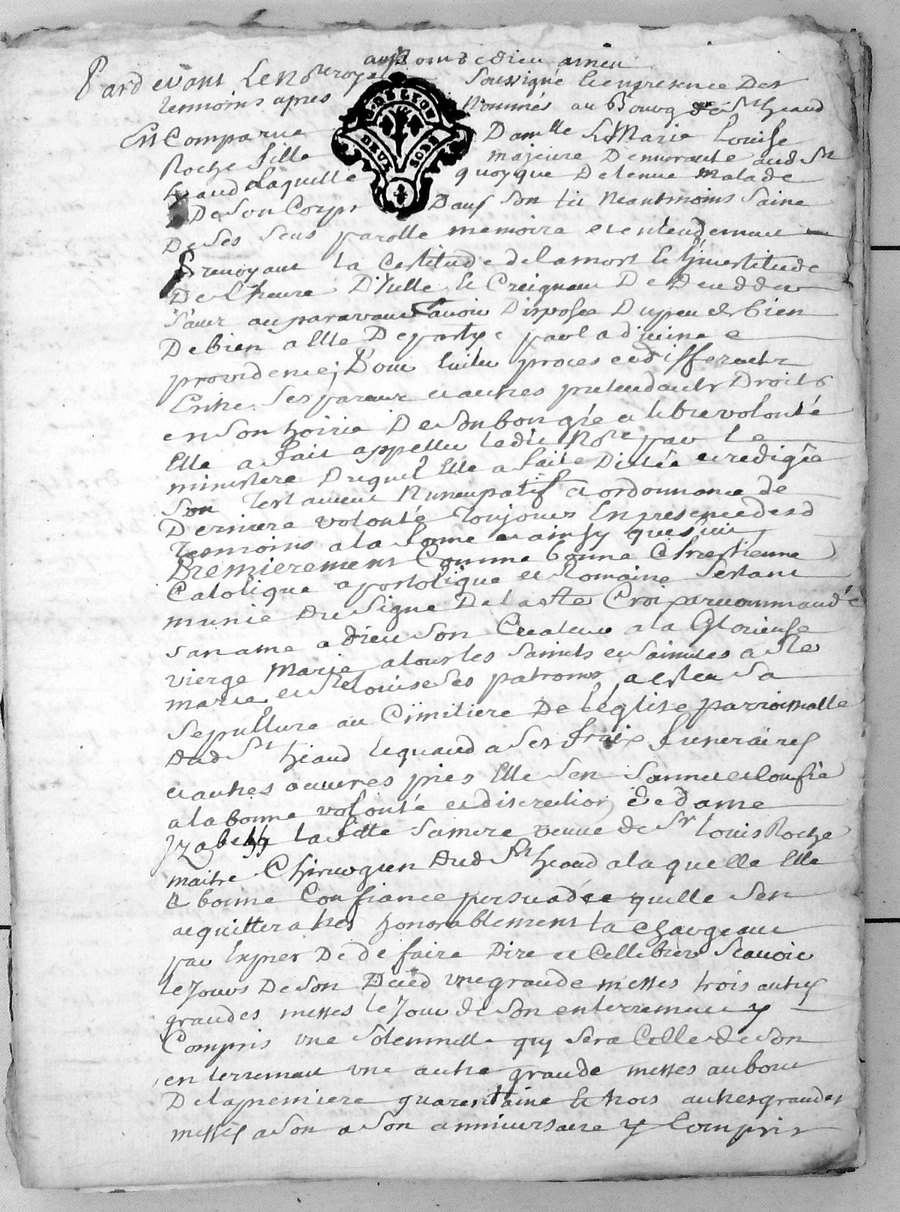 au nom de dieu amen
Pardevant Le Nore royal Soussigné et en presence Des
temoins apres Nommés au Bourg de St héand
DE LYON
DEUX SOLS
En Comparue Damlle Marie Louise
Roche fille majeure Demeurante aud St
héand Laquelle quoyque Detenue malade
De Son Corps Dans Son lit Neantmoins Saine
De Ses Sens parolle memoire et entendement
Prevoyant la Certitude de la mort et l'incertitude
De L'heure D'icelle et Creignant De Decedder
Sans auparavant avoir Disposée Du peu de bien
De bien a elle Departy par la divine
providence; Pour eviter proces et differents
Entre Ses parens et autres pretendants Droits
en Son hoirie De Son bon gré et libre volonté
Elle a fait appeller ledit Nore par le
ministere Duquel Elle a faite Dictée et redigée
Son Testament Nuncupatif et ordonnance de
Derniere volonté toujours En presence desd
temoins a la forme et ainsy que suit
Premierement Comme bonne Chrestienne
Catolique apostolique et Romaine S'estant
munie Du Signe De la Ste Croix a recommandé
San ame a Dieu Son Createur a la Glorieuse
vierge Marie a tous les Saints et Saintes à Ste
marie et St Louise Ses patrons a esleu Sa
Sepulture au Cimitiere De L'eglise parroissialle
Dud St héand et quand a Ses frais funeraires
et autres oeuvres pies Elle S'en Sonmet et confie
a la bonne volonté et discretion de dame
Izabeau la Sa mere veuve de Sr Louis Roche
maitre Chirurgien Dud St héand a laquelle Elle
a bonne Confiance persuadée quelle S'en
acquittera tres honorablement La Chargeant
par Expres De de faire Dire et Cellebrer Scavoir
le Jours De Son Deced une grande messes trois autres
grandes messes le Jour de Son enterrement y
Compris une Solemnelle quy Sera Celle de Son
enterrement une autre grande messes au bout
De la premiere quarentaine et trois autres grandes
messes a Son a Son anniversaire y Compris